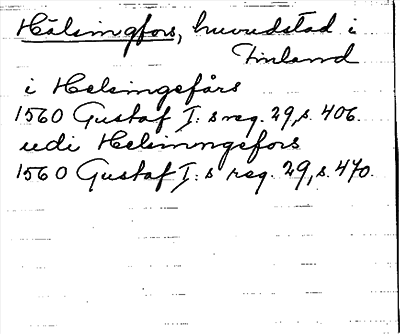 Hälsingfors, huvudstad i
Finland
i Helsingefårs
1560 Gustaf I: s reg. 29, s. 406.
udi Helsinngefors
1560 Gustaf I: s reg. 29, s. 470.